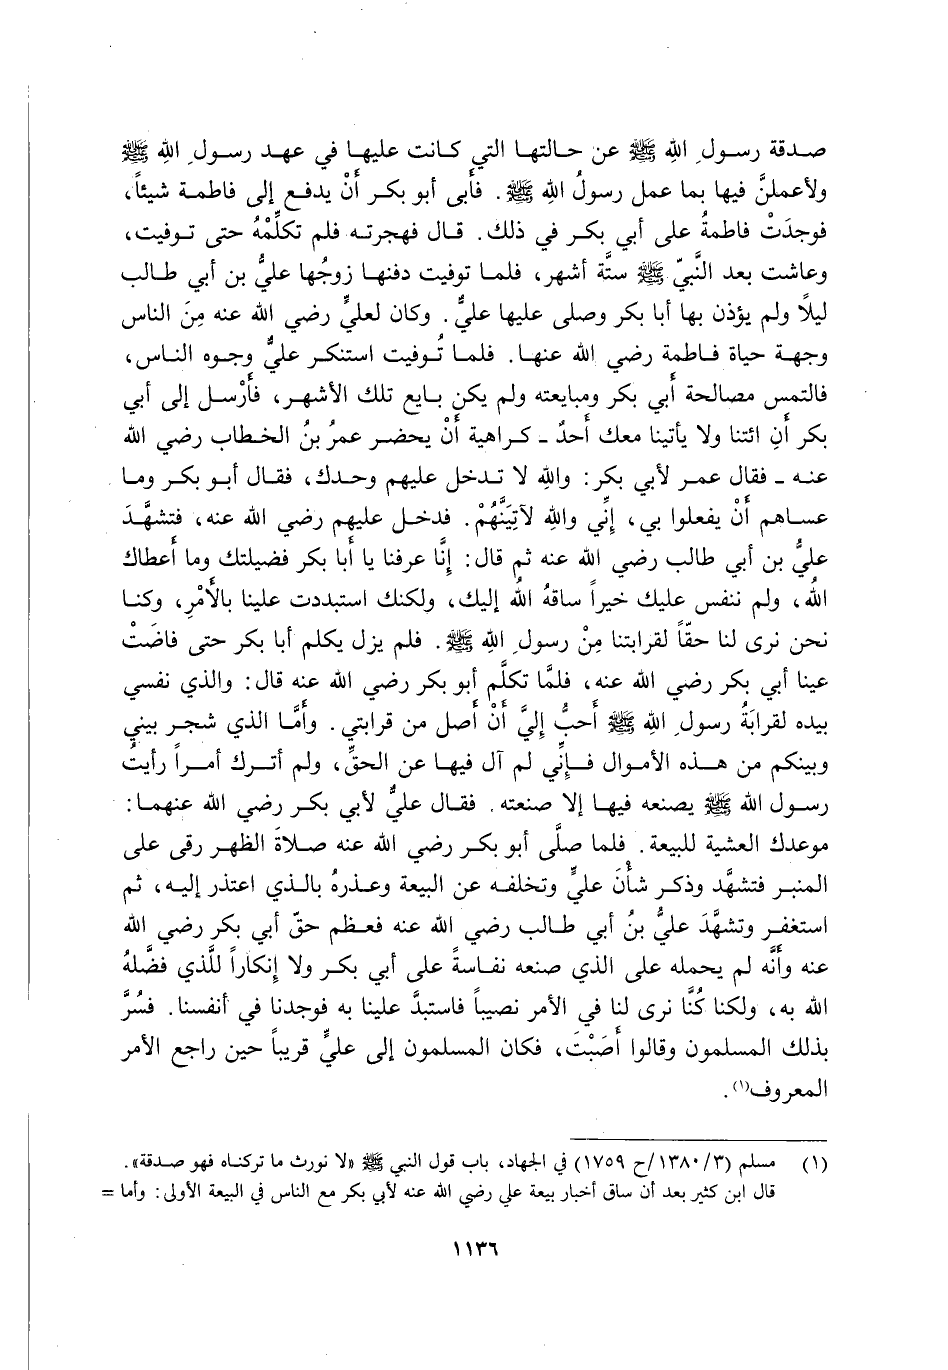 صدقة رسول الله ﷺ عن حالتها التي كانت عليها في عهد رسول الله ﷺ
ولأعملنَّ فيها بما عمل رسولُ الله ﷺ. فأبى أبو بكر أَنْ يدفع إلى فاطمة شيئاً،
فوجدَتْ فاطمةُ على أبي بكر في ذلك. قال فهجرته فلم تكلِّمْهُ حتى توفيت،
وعاشت بعد النَّبيّ ﷺ ستَّة أشهر، فلما توفيت دفنها زوجُها عليُّ بن أبي طالب
ليلاً ولم يؤذن بها أبا بكر وصلى عليها عليُّ. وكان لعليٍّ رضي الله عنه مِنَ الناس
وجهة حياة فاطمة رضي الله عنها. فلما تُوفيت استنكر عليُّ وجوه الناس،
فالتمس مصالحة أَبي بكر ومبايعته ولم يكن بايع تلك الأشهر، فَأَرْسل إلى أبي
بكر أَنِ ائتنا ولا يأتينا معك أَحدٌ - كراهية أَنْ يحضر عمرُ بنُ الخطاب رضي الله
عنه - فقال عمر لأبي بكر: واللهِ لا تدخل عليهم وحدك، فقال أبو بكر وما
عساهم أَنْ يفعلوا بي، إِنِّي واللهِ لآتِيَنَّهُمْ. فدخل عليهم رضي الله عنه، فتشهَّدَ
عليُّ بن أبي طالب رضي الله عنه ثم قال: إِنَّا عرفنا يا أَبا بكر فضيلتك وما أَعطاك
اللهُ، ولم ننفس عليك خيراً ساقهُ اللهُ إليك، ولكنك استبددت علينا بالأَمْرِ، وكنا
نحن نرى لنا حقّاً لقرابتنا مِنْ رسول الله ﷺ. فلم يزل يكلم أبا بكر حتى فاضَتْ
عينا أبي بكر رضي الله عنه، فلمَّا تكلَّم أبو بكر رضي الله عنه قال: والذي نفسي
بيده لقرابَةُ رسول الله ﷺ أَحبُّ إليَّ أَنْ أَصل من قرابتي. وأَمَّا الذي شجر بيني
وبينكم من هذه الأموال فإنِّي لم آل فيها عن الحقِّ، ولم أترك أمراً رأيتُ
رسول الله ﷺ يصنعه فيها إلا صنعته. فقال عليُّ لأبي بكر رضي الله عنهما:
موعدك العشية للبيعة. فلما صلَّى أبو بكر رضي الله عنه صلاةَ الظهر رقى على
المنبر فتشهَّد وذكر شأْنَ عليٍّ وتخلفه عن البيعة وعذرهُ بالذي اعتذر إليه، ثم
استغفر وتشهَّدَ عليُّ بنُ أبي طالب رضي الله عنه فعظم حقّ أبي بكر رضي الله
عنه وأَنَّه لم يحمله على الذي صنعه نفاسةً على أبي بكر ولا إنكاراً للَّذي فضَّلهُ
الله به، ولكنا كُنَّا نرى لنا في الأمر نصيباً فاستبدَّ علينا به فوجدنا في أنفسنا. فسُرَّ
بذلك المسلمون وقالوا أَصَبْتَ، فكان المسلمون إلى عليٍّ قريباً حين راجع الأمر
المعروف(١).
(١) مسلم (١٣٨٠/٣/ح ١٧٥٩) في الجهاد، باب قول النبي ﷺ «لا نورث ما تركناه فهو صدقة».
قال ابن كثير بعد أن ساق أخبار بيعة علي رضي الله عنه لأبي بكر مع الناس في البيعة الأولى: وأما =
١١٣٦